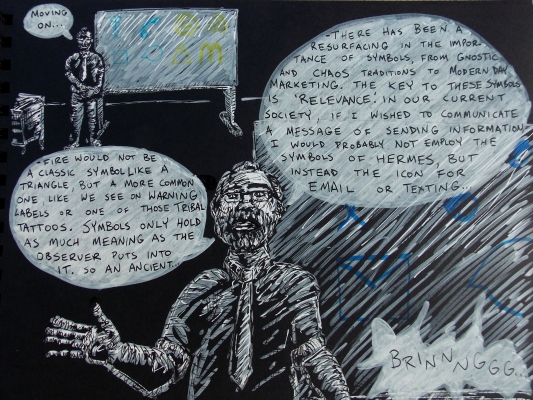 MOVING
ON...
-THERE HAS BEEN A
RESURFACING IN THE IMPOR-
TANCE OF SYMBOLS, FROM GNOSTIC
AND CHAOS TRADITIONS TO MODERN DAY
MARKETING. THE KEY TO THESE SYMBOLS
IS 'RELEVANCE'. IN OUR CURRENT
SOCIETY, IF I WISHED TO COMMUNICATE
A MESSAGE OF SENDING INFORMATION
I WOULD PROBABLY NOT EMPLOY THE
SYMBOLS OF HERMES, BUT
INSTEAD THE ICON FOR
EMAIL OR TEXTING...
-FIRE WOULD NOT BE
A CLASSIC SYMBOL LIKE A
TRIANGLE, BUT A MORE COMMON
ONE LIKE WE SEE ON WARNING
LABELS OR ONE OF THOSE TRIBAL
TATTOOS. SYMBOLS ONLY HOLD
AS MUCH MEANING AS THE
OBSERVER PUTS INTO
IT. SO AN ANCIENT...
BRINNNGGG...